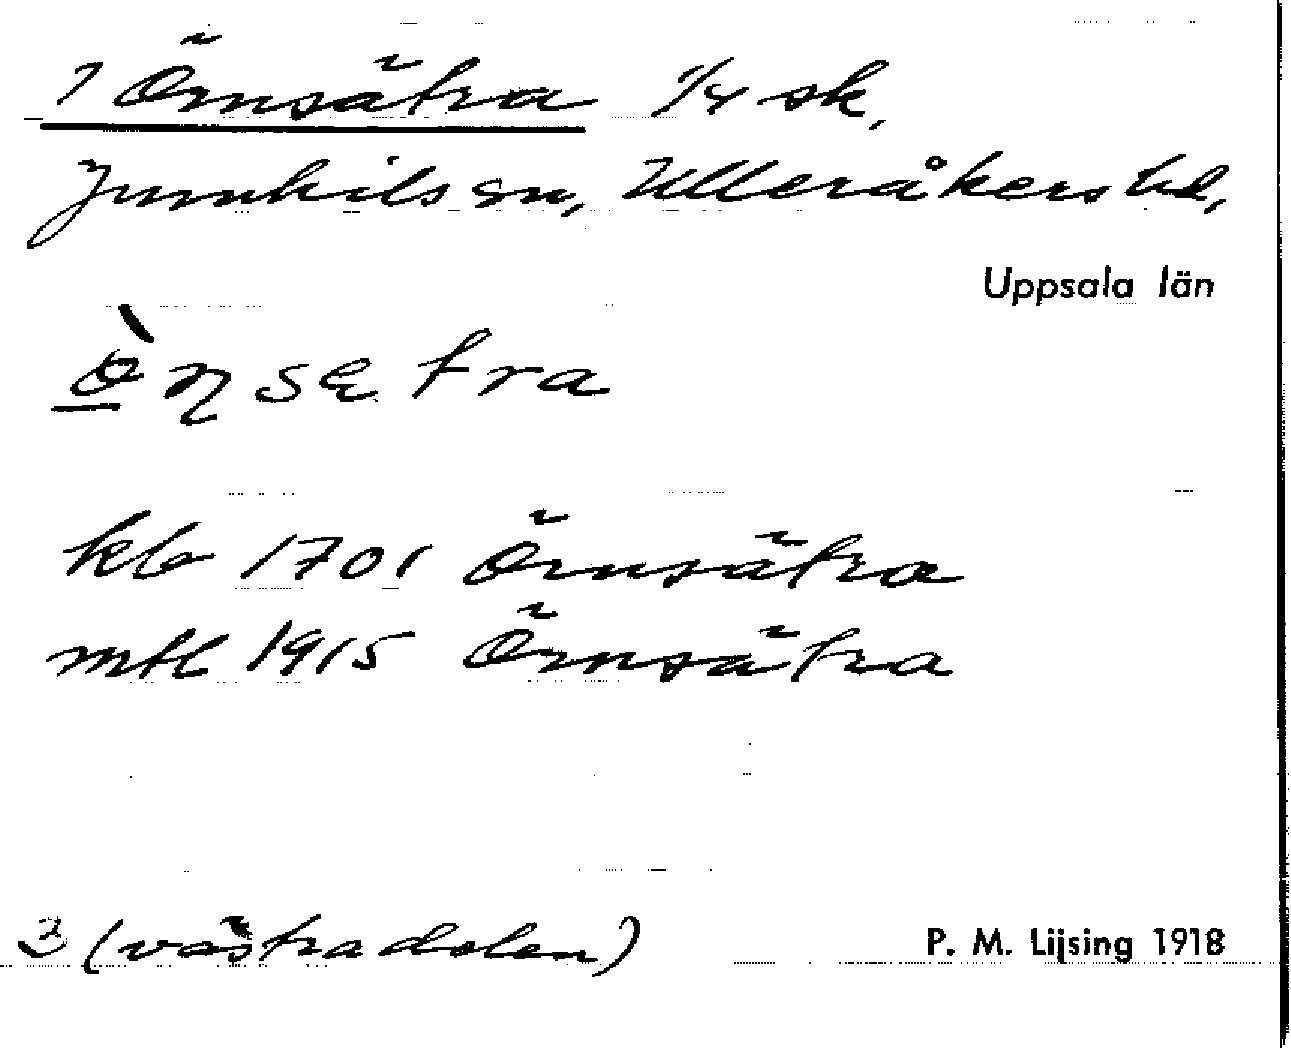 1 Örnsätra 1/4 sk,
Jumkils sn, Ulleråkers hd,
Uppsala län
kb 1701 Örnsätra
mtl 1915 Örnsätra
3 (västra delen) P. M. Lijsing 1918